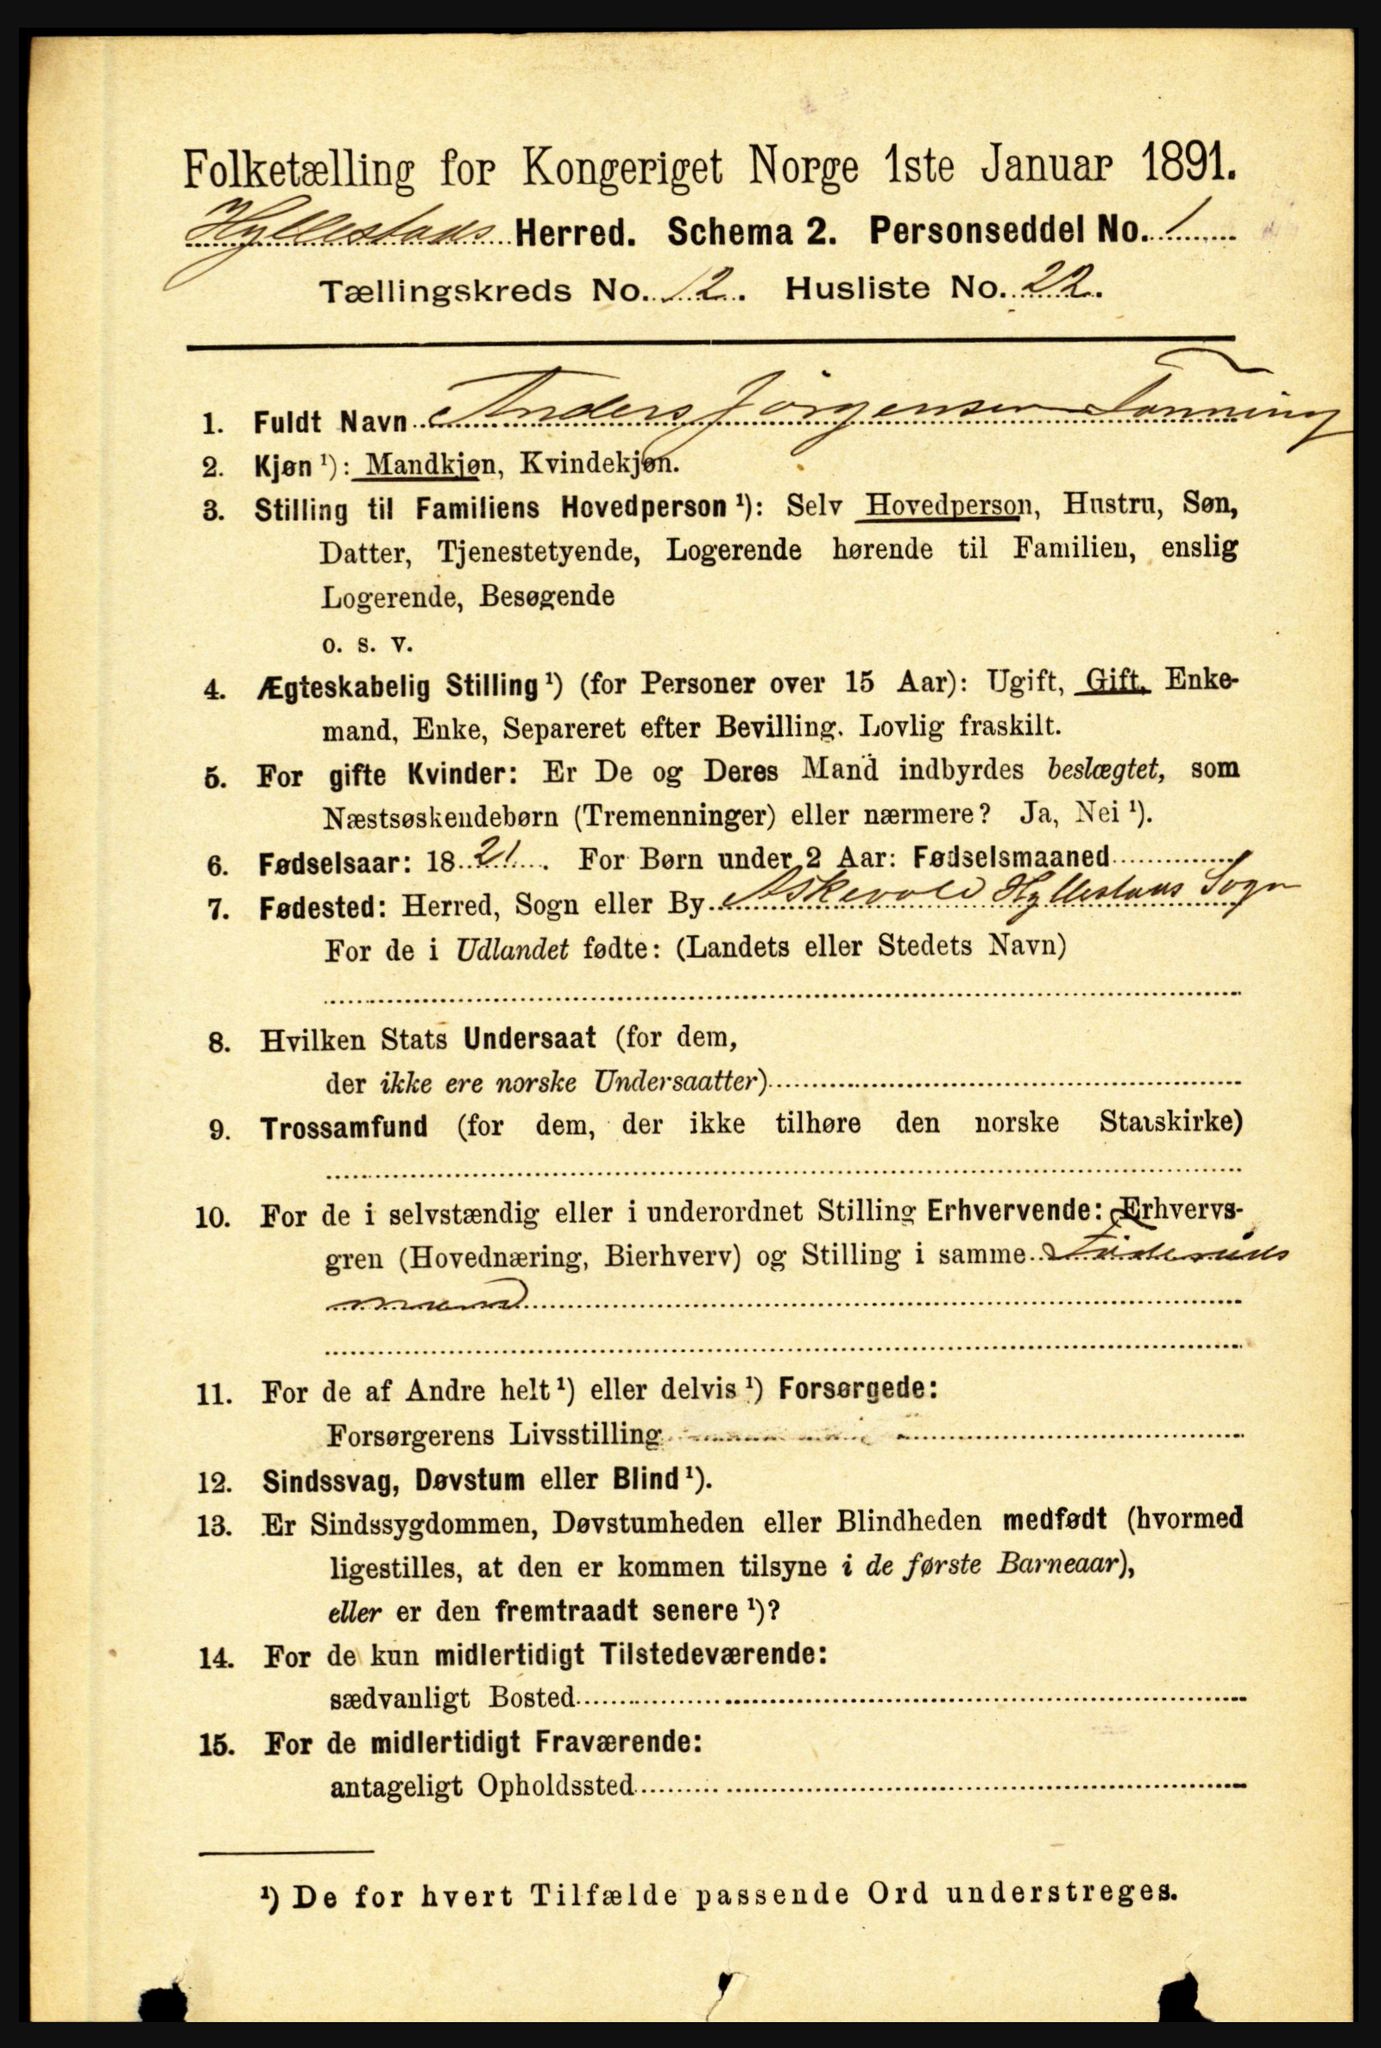 Folketælling for Kongeriget Norge 1ste Januar 1891.
Hyllestads Herred. Schema 2. Personseddel No. 1
Tællingskreds No. 12. Husliste No. 22.
1. Fuldt Navn Anders Jörgensen Tönning
2. Kjøn ¹): Mandkjøn, Kvindekjøn.
3. Stilling til Familiens Hovedperson ¹): Selv Hovedperson, Hustru, Søn,
Datter, Tjenestetyende, Logerende hørende til Familien, enslig
Logerende, Besøgende
o. s. v.
4. Ægteskabelig Stilling ¹) (for Personer over 15 Aar): Ugift, Gift, Enke-
mand, Enke, Separeret efter Bevilling. Lovlig fraskilt.
5. For gifte Kvinder: Er De og Deres Mand indbyrdes beslægtet, som
Næstsøskendebørn (Tremenninger) eller nærmere? Ja, Nei ¹).
6. Fødselsaar: 1821. For Børn under 2 Aar: Fødselsmaaned
7. Fødested: Herred, Sogn eller By Askevold Hyllestads Sogn
For de i Udlandet fødte: (Landets eller Stedets Navn)
8. Hvilken Stats Undersaat (for dem,
der ikke ere norske Undersaatter)
9. Trossamfund (for dem, der ikke tilhøre den norske Statskirke)
10. For de i selvstændig eller i underordnet Stilling Erhvervende: Erhvervs-
gren (Hovednæring, Bierhverv) og Stilling i samme Föderaads
mand
11. For de af Andre helt ¹) eller delvis ¹) Forsørgede:
Forsørgerens Livsstilling
12. Sindssvag, Døvstum eller Blind ¹).
13. Er Sindssygdommen, Døvstumheden eller Blindheden medfødt (hvormed
ligestilles, at den er kommen tilsyne i de første Barneaar),
eller er den fremtraadt senere ¹)?
14. For de kun midlertidigt Tilstedeværende:
sædvanligt Bosted
15. For de midlertidigt Fraværende:
antageligt Opholdssted
¹) De for hvert Tilfælde passende Ord understreges.